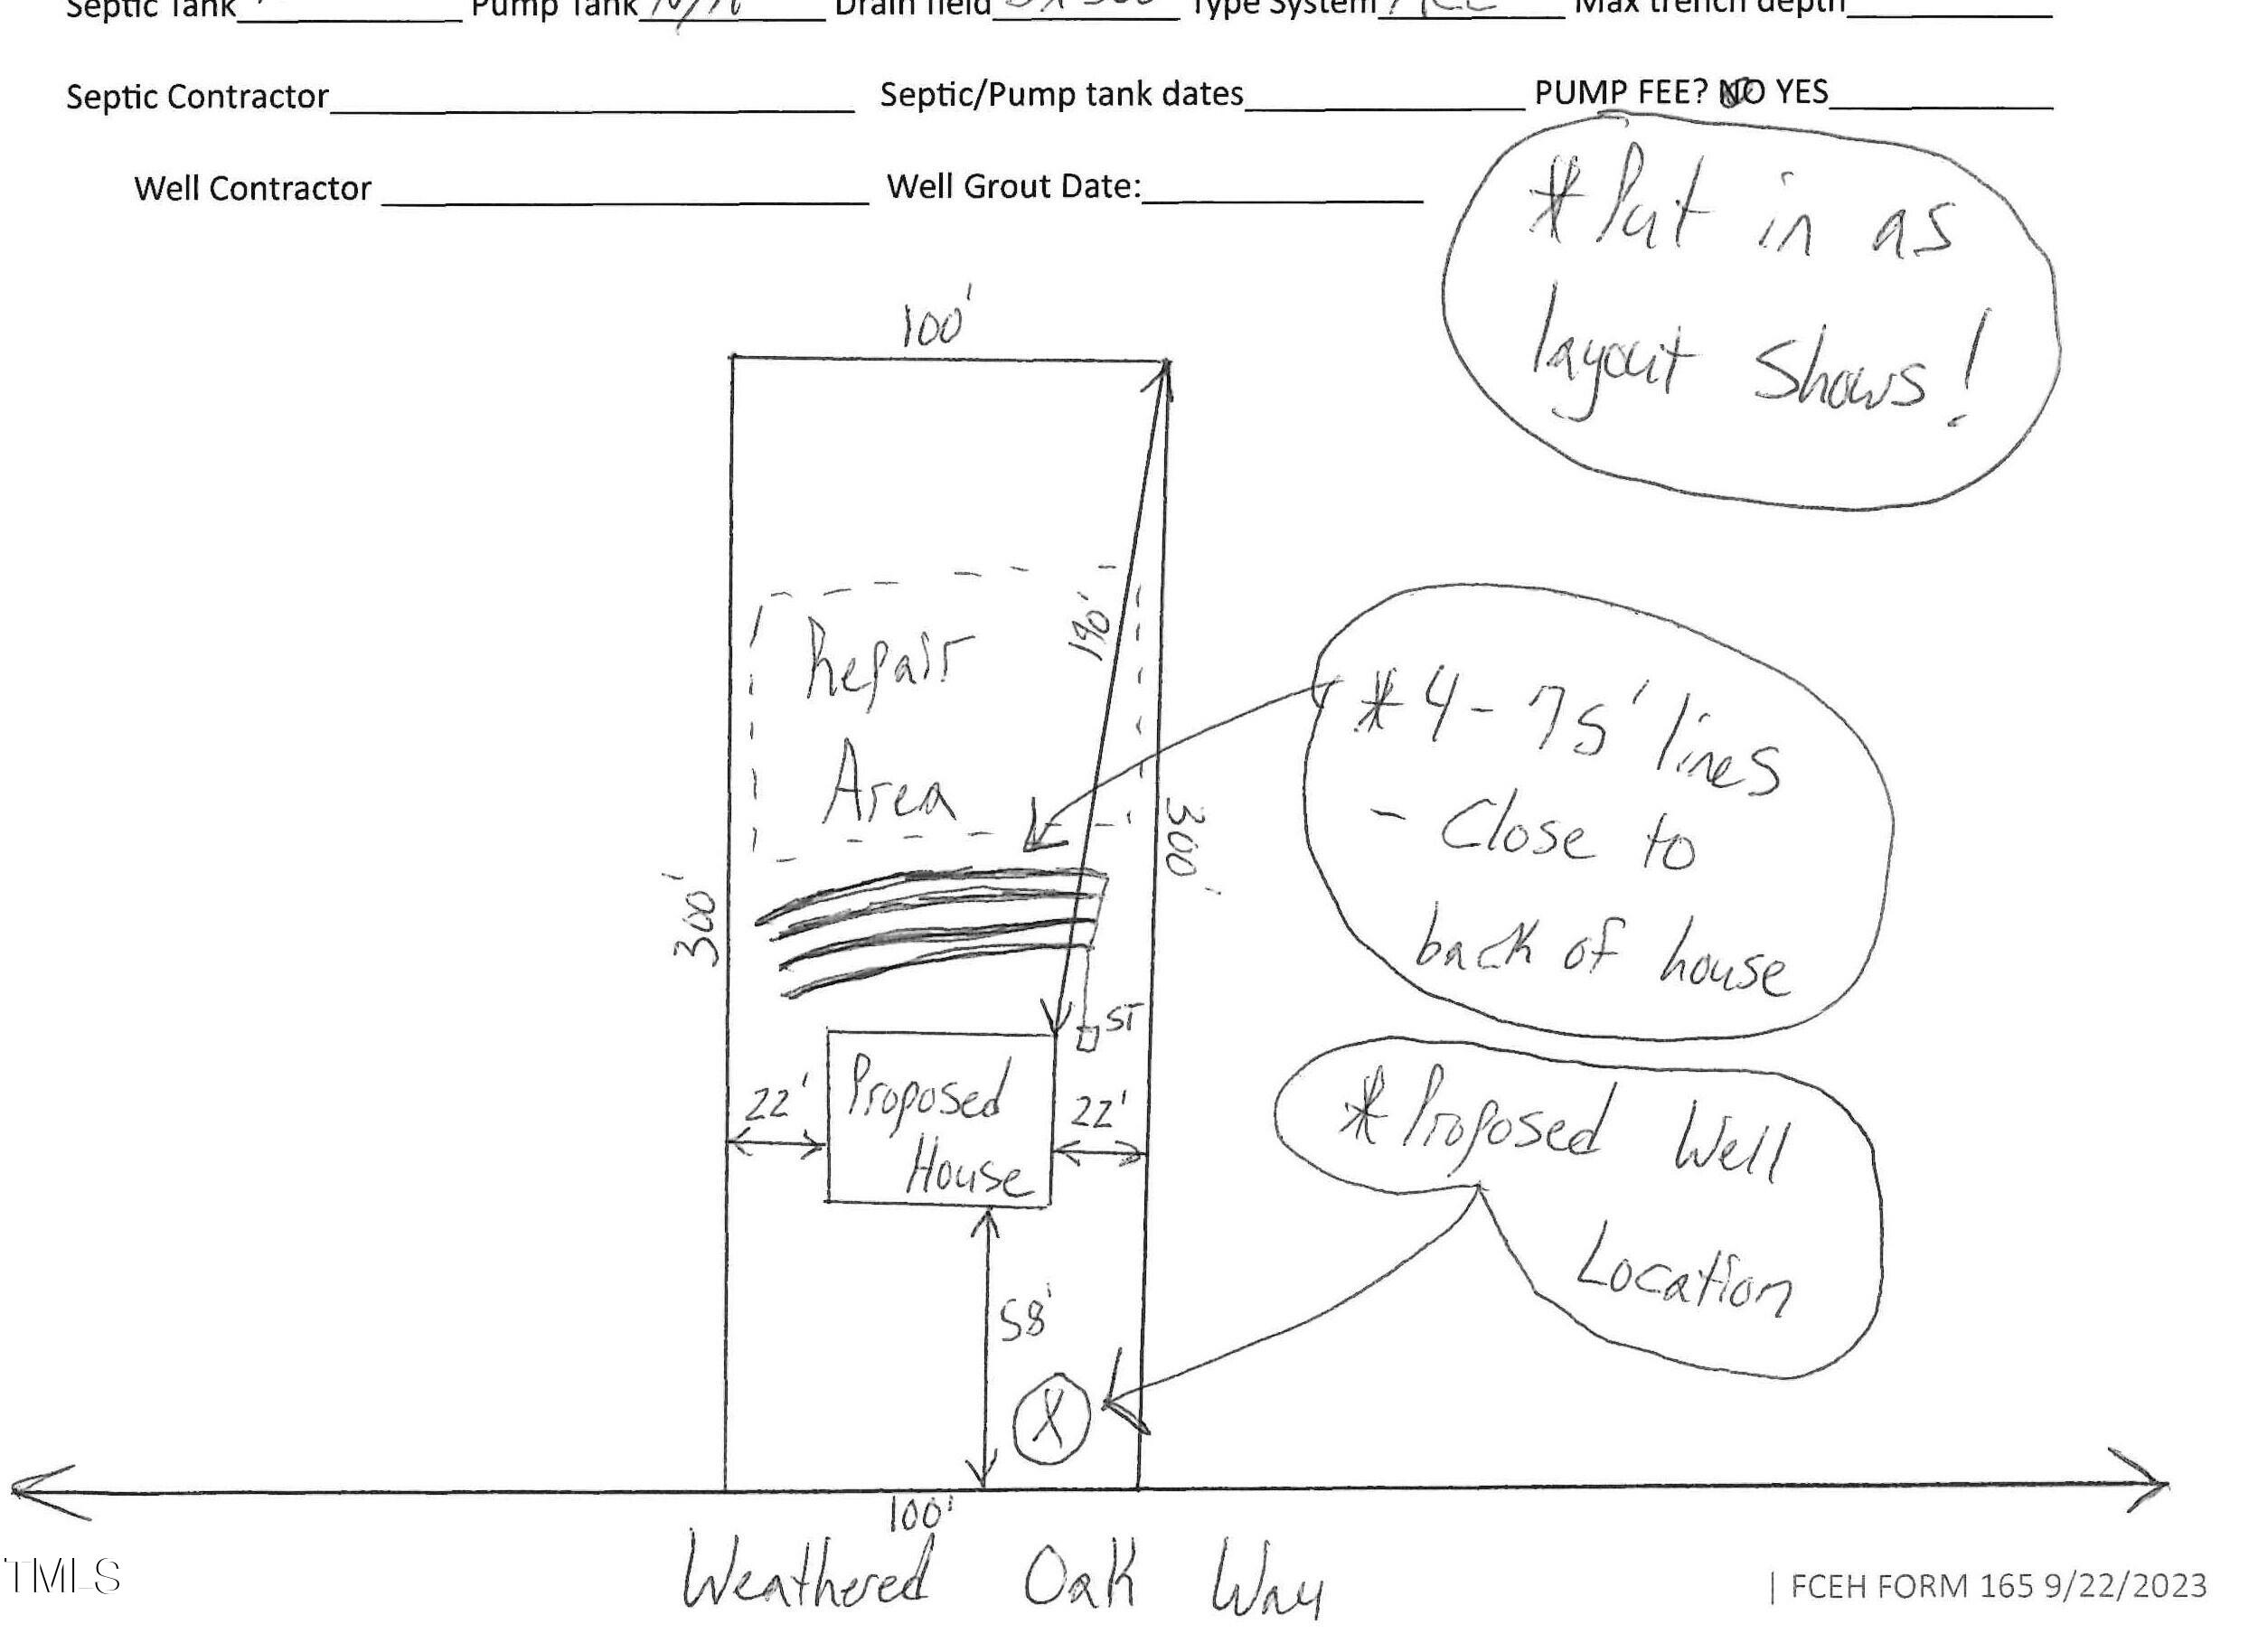 Septic Tank Pump Tank N/A Drain field 3x300 Type System Max trench depth
Septic Contractor Septic/Pump tank dates PUMP FEE? NO YES
Well Contractor Well Grout Date:
*Put in as
layout shows!
100'
190'
Repair
Area
*4-75' lines
- Close to
back of house
300'
300'
ST
22'
Proposed
House
22'
*Proposed Well
Location
58'
X
100'
Weathered Oak Way
TMLS
| FCEH FORM 165 9/22/2023